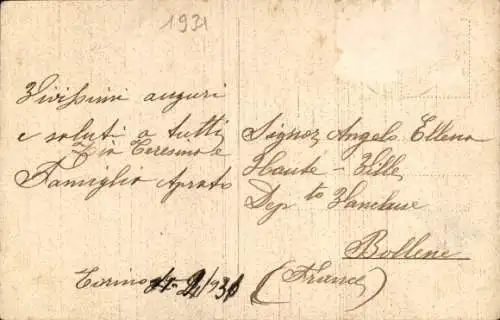 1931
Vivissimi auguri
e saluti a tutti
Zia Teresina e
Famiglia Aprato
Torino 931
Signor Angelo Ellena
Haute-Ville
Dep to Vancluse
Bollene
(France)